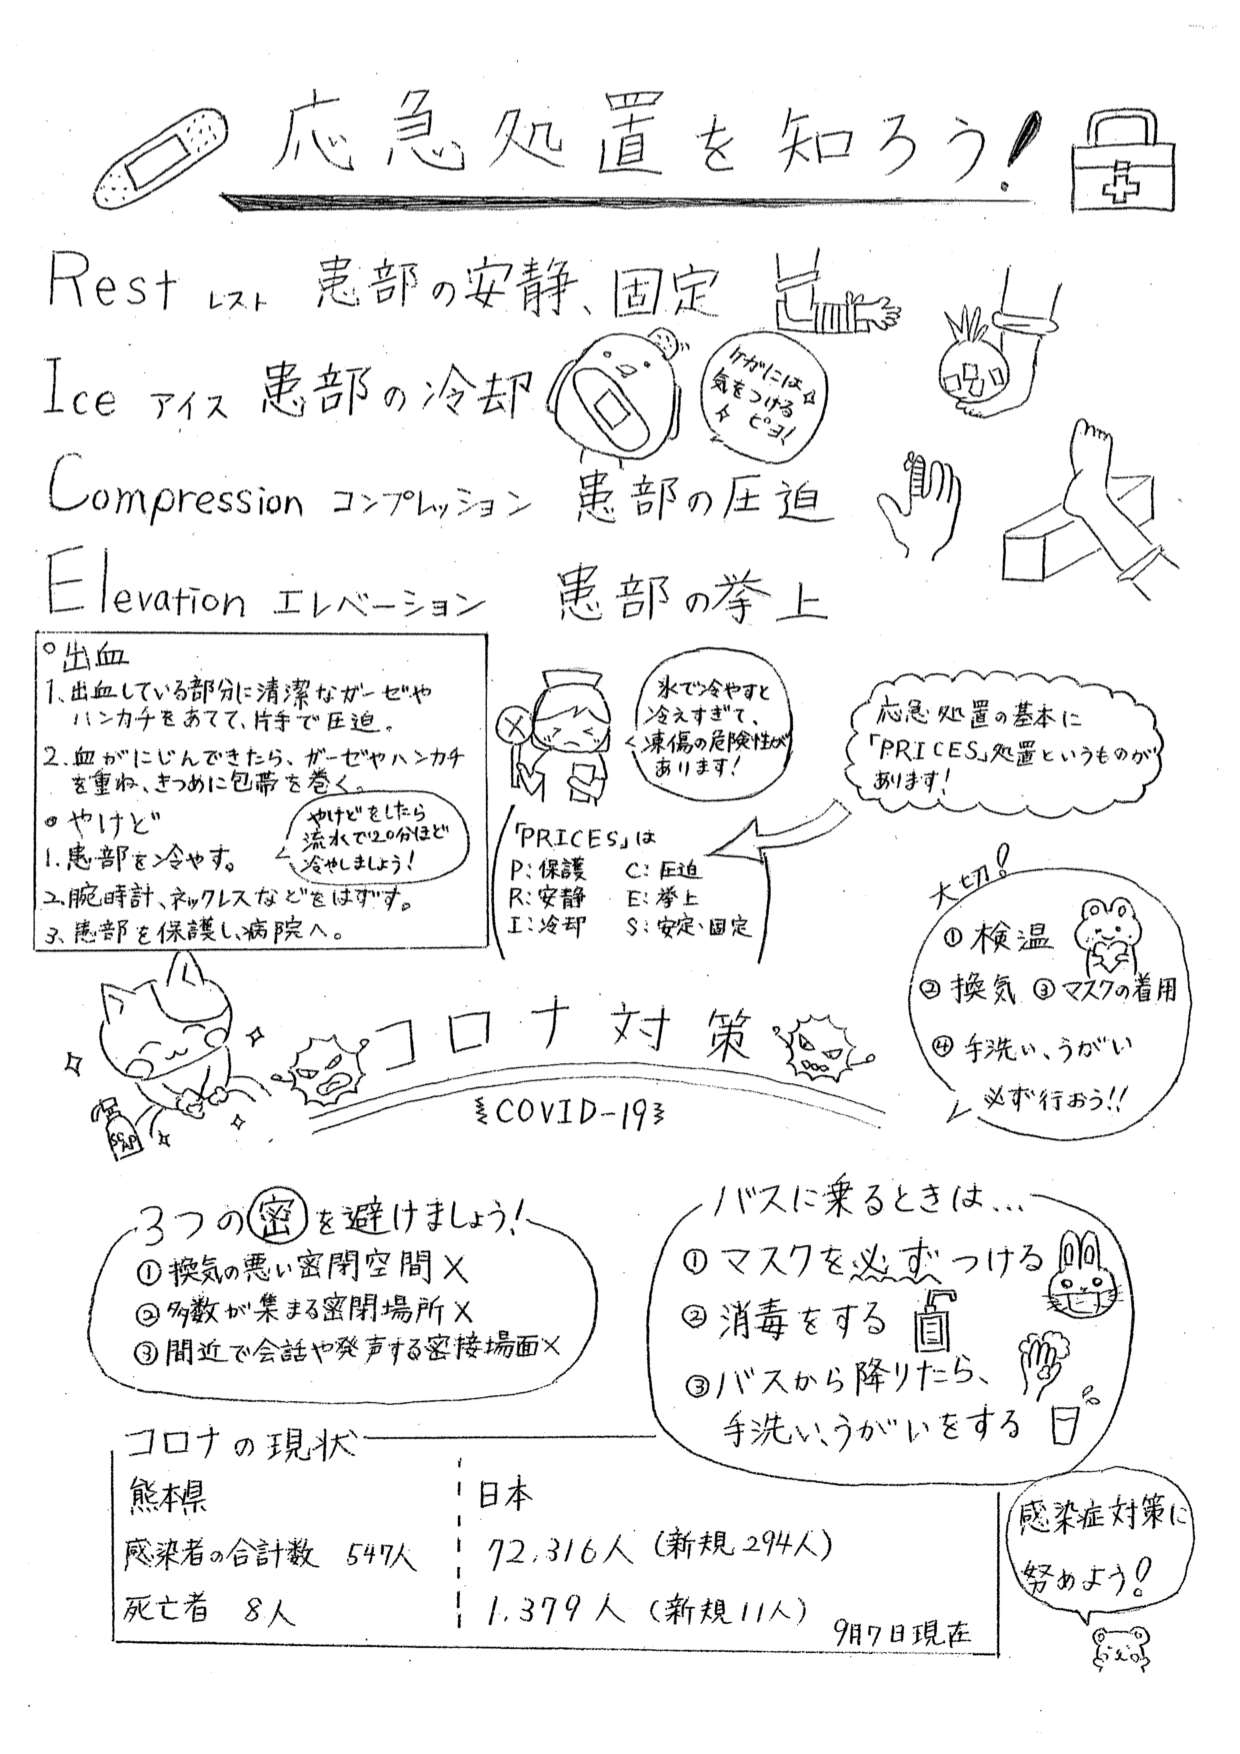 応急処置を知ろう!
Rest レスト 患部の安静、固定
Ice アイス 患部の冷却
ケガには
気をつける
ピヨ!
Compression コンプレッション 患部の圧迫
Elevation エレベーション 患部の挙上
○出血
1、出血している部分に清潔なガーゼや
ハンカチをあてて、片手で圧迫。
2、血がにじんできたら、ガーゼやハンカチ
を重ね、きつめに包帯を巻く。
○やけど
1、患部を冷やす。
2、腕時計、ネックレスなどをはずす。
3、患部を保護し、病院へ。
やけどをしたら
流水で20分ほど
冷やしましょう!
氷で冷やすと
冷えすぎて、
凍傷の危険性が
あります!
応急処置の基本に
「PRICES」処置というものが
あります!
「PRICES」は
P:保護 C:圧迫
R:安静 E:挙上
I:冷却 S:安定・固定
大切!
①検温
②換気 ③マスクの着用
④手洗い、うがい
必ず行おう!!
コロナ対策
COVID-19
SOAP
3つの密を避けましょう!
①換気の悪い密閉空間×
②多数が集まる密閉場所×
③間近で会話や発声する密接場面×
バスに乗るときは…
①マスクを必ずつける
②消毒をする
③バスから降りたら、
手洗い、うがいをする
コロナの現状
熊本県
感染者の合計数 547人
死亡者 8人
日本
72,316人(新規294人)
1,379人(新規11人)
9月7日現在
感染症対策に
努めよう!